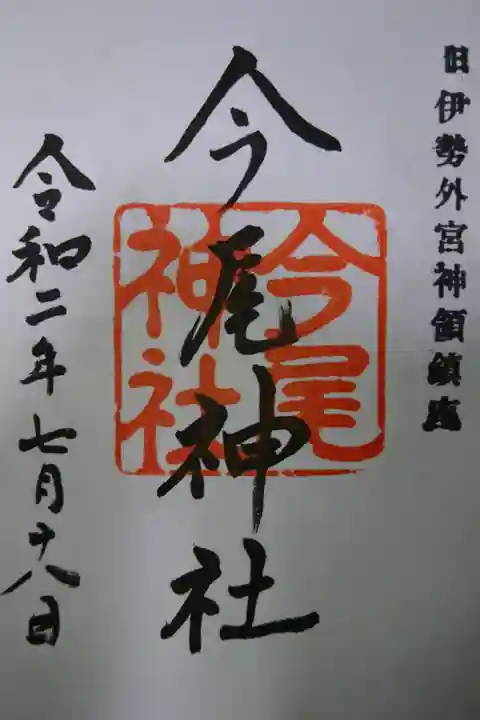 旧伊勢外宮神領鎮座
今尾神社
今尾
神社
令和二年七月十八日